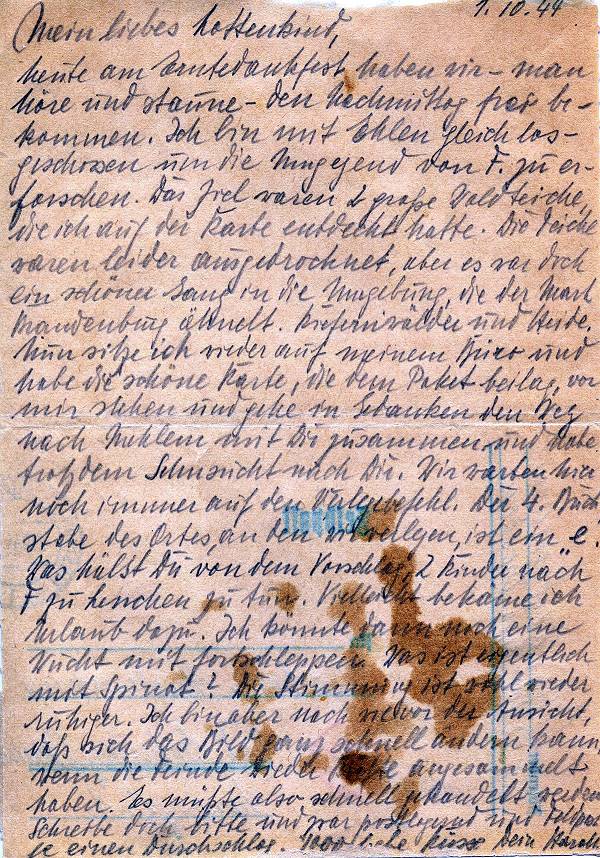 1.10.44
Mein liebes Lottenkind,
heute am Erntedankfest haben wir – man
höre und staune – den Nachmittag frei be-
kommen. Ich bin mit Ehlen gleich los-
geschossen um die Umgegend von F. zu er-
forschen. Das Ziel waren 2 große Waldteiche,
die ich auf der Karte entdeckt hatte. Die Teiche
waren leider ausgetrocknet, aber es war doch
ein schöner Gang in die Umgebung, die der Mark
Brandenburg ähnelt. Kiefernwälder und Heide.
Nun sitze ich wieder auf meinem Büro und
habe die schöne Karte, die dem Paket beilag, vor
mir stehen und gehe in Gedanken den Weg
nach mit Dir zusammen und habe
trotzdem Sehnsucht nach Dir. Wir warten hier
noch immer auf den. Der 4. Buch-
stabe des Ortes, an den wir verlegen, ist ein e.
Was hälst Du von dem Vorschlag, 2 Kinder nach
F zu Lenchen zu tun. Vielleicht bekäme ich
Urlaub dazu. Ich könnte dann noch eine
mit fortschleppen. Was ist eigentlich
mit Spinat? Die Stimmung ist wohl wieder
ruhiger. Ich bin aber nach wie vor der Ansicht,
daß sich das Bild ganz schnell ändern kann,
wenn die Feinde wieder Kräfte angesammelt
haben. Es müßte also schnell gehandelt werden
Schreibe doch bitte und zwar postlagernd und Feldpost
je einen Durchschlag. 1000 liebe Küsse Dein Harald